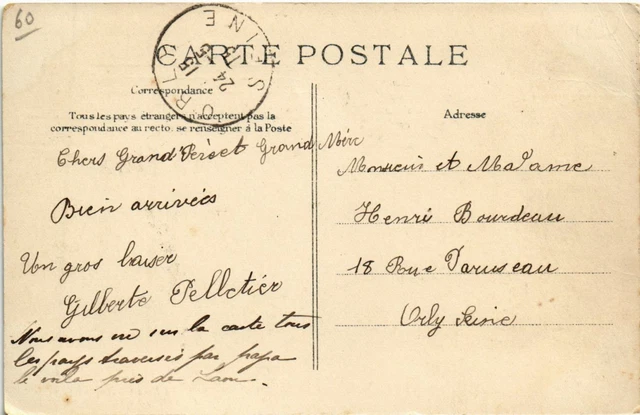 60
CARTE POSTALE
ORLY
SEINE
15 15
24 - 5
15
Correspondance
Tous les pays étrangers n'acceptent pas la
correspondance au recto, se renseigner à la Poste
Chers Grand Père et Grand Mère
Bien arrivées
Un gros baiser
Gilberte Pelletier
Nous avons vu sur la carte tous
les pays traversés par papa
le voila près de Laon.
Adresse
Monsieur et Madame
Henri Bourdeau
18 Rue
Orly Seine